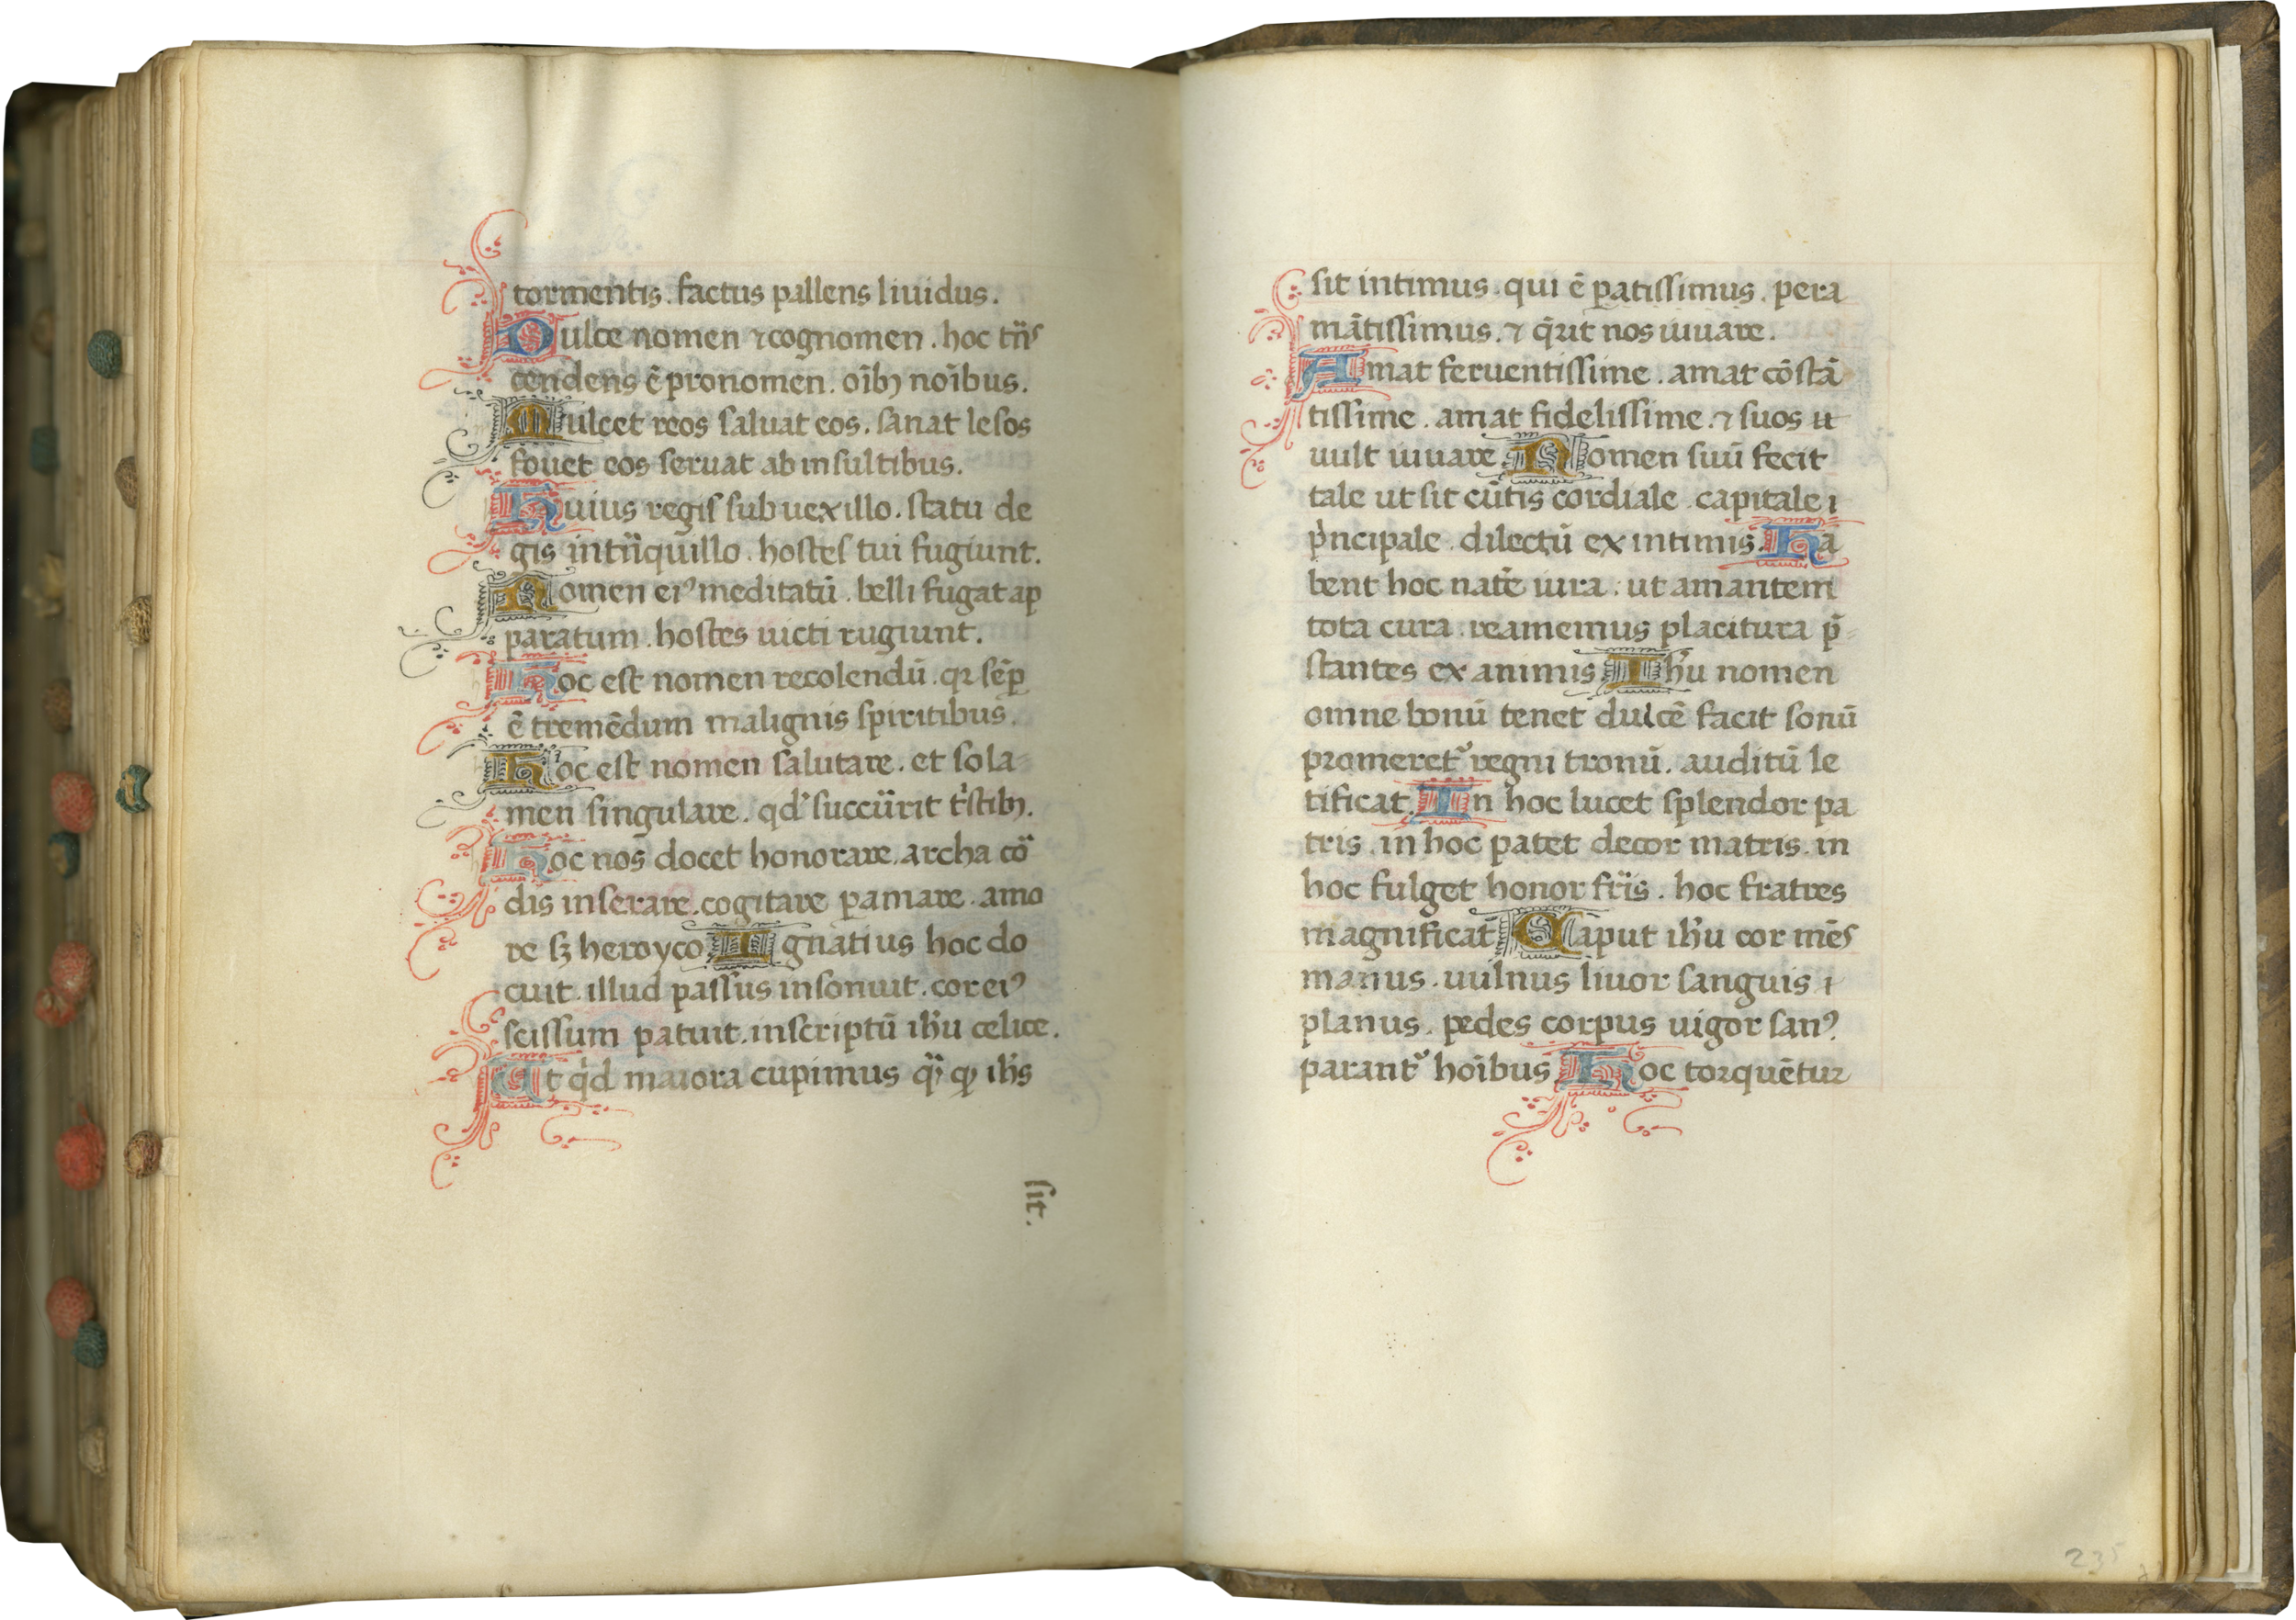 tormentis. factus pallens liuidus.
Dulce nomen ⁊ cognomen. hoc tñs
cendens ē pronomen. oībꝫ noībus.
Mulcet reos saluat eos. sanat lesos
fouet eos seruat ab insultibus.
Huius regis sub uexillo. statu de
gis in tñquillo. hostes tui fugiunt.
Nomen eiꝰ meditatū. belli fugat ap
paratum. hostes uicti rugiunt.
Hoc est nomen recolendū. qꝛ sēꝑ
ē tremēdum malignis spiritibus.
Hoc est nomen salutare. et sola-
men singulare. qd̓ succūrit tͥstibꝫ.
Hoc nos docet honorare. archa cō
dis inserare. cogitare ꝑamare. amo
re sꝫ heroyco Ignatius hoc do
cuit. illud passus insonuit. cor eiꝰ
scissum patuit. inscriptū ih̄u celice.
At qͥd maiora cupimus ihs̄
sit.
sit intimus. qui ē ꝑatissimus. pera
mātissimus. ⁊ q̄rit nos iuuare.
Amat feruentissime. amat cōstā
tissime. amat fidelissime. ⁊ suos
uult iuuare Nomen suū fecit
tale ut sit cūtis cordiale. capitale ⁊
pͥncipale. dilectū ex intimis. Ha
bent hoc natē iura. ut amantem
tota cura. reamemus placitura p̄-
stantes ex animis Ih̄u nomen
omne bonū tenet dulcē facit sonū
promeretᷣ regni tronū. auditū le
tificat. In hoc lucet splendor pa
tris. in hoc patet decor matris. in
hoc fulget honor fr̄is. hoc fratres
magnificat Caput ih̄u cor mēs
manus. uulnus liuor sanguis ⁊
planus. pedes corpus uigor sanꝰ.
parantᷣ hoībus Hoc torquētur
235